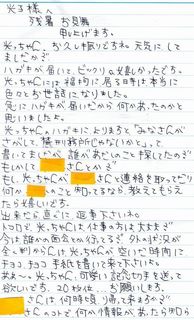 光子様へ
残暑お見舞
申し上げます。
光ッちゃん、お久し振りですね。元気にして
ましたか？
ハガキが届いて、ビックリ&嬉しかったです。
光ッちゃんには福島に居る時は本当に
色々とお世話になりました。
急にハガキが届いたから何かあったのかと
思いました。
光ッちゃんのハガキによりますと「みなさんが
さがして、
書いてましたが、誰があたいのこと探してたので
もしかして さんかな？
もし、光ッちゃんが さんと連絡を取ってたり
何か のこと知ってるなら教えてもらえ
たら嬉しいです。
出来たら直ぐに返事下さいネ。
トコロで、光ッちゃんは仕事の方は大丈夫？
今は誰かの面会とか行ってる？外の状況が
全く判らんけぇ光ッちゃんが空いた時間に
チョコ、チョコ手紙を書いて来て下さい。
あぁ～、光ッちゃん、可愛い記念切手を送って
欲しいです。20枚位、お願いします。
さんは何時頃帰って来るかな？
さんのコトで何か情報があったら知り